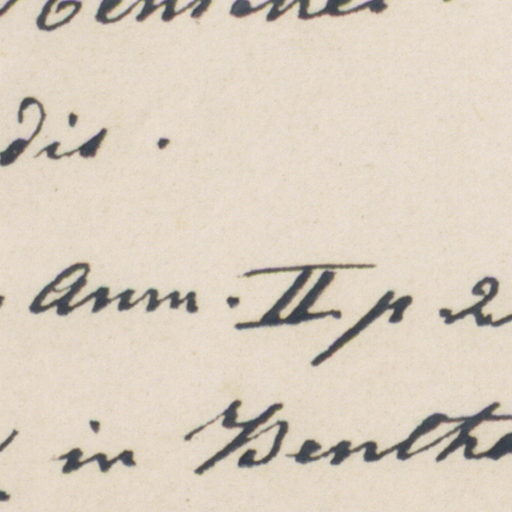 dis.
Anm. II. p 2
in Benth